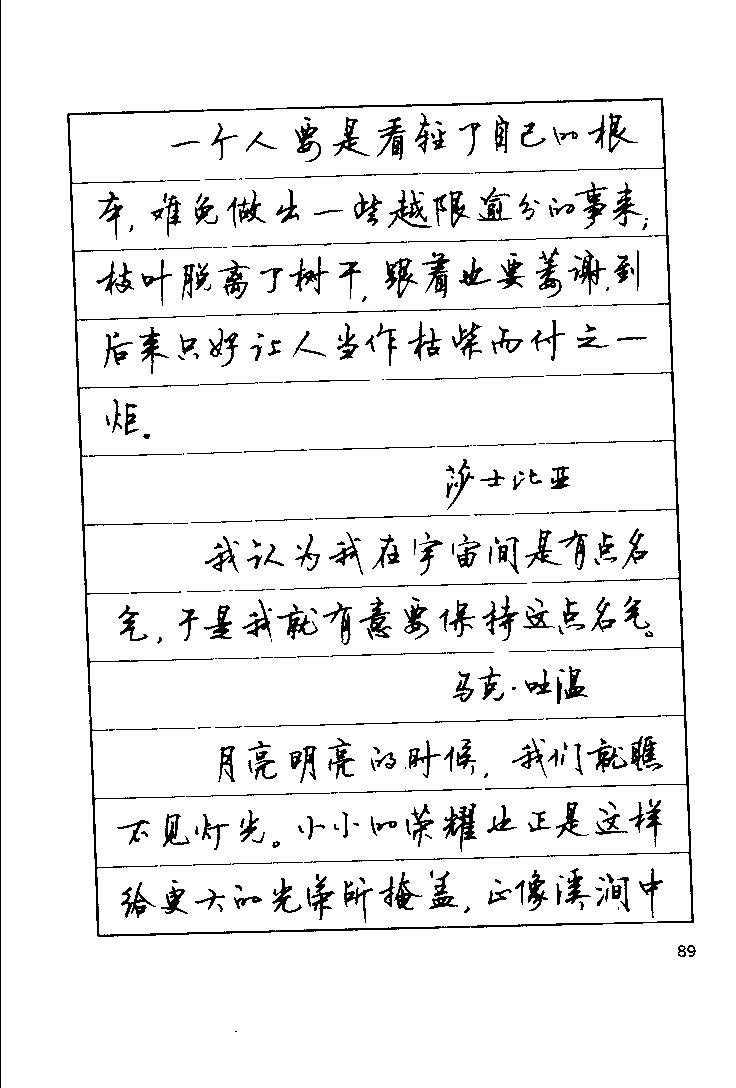 一个人要是看轻了自己的根
本,难免做出一些越限逾分的事来;
枝叶脱离了树干,跟着也要萎谢,到
后来只好让人当作枯柴而付之一
炬。
莎士比亚
我认为我在宇宙间是有点名
气,于是我就有意要保持这点名气。
马克·吐温
月亮明亮的时候,我们就瞧
不见灯光。小小的荣耀也正是这样
给更大的光荣所掩盖,正像溪涧中
89